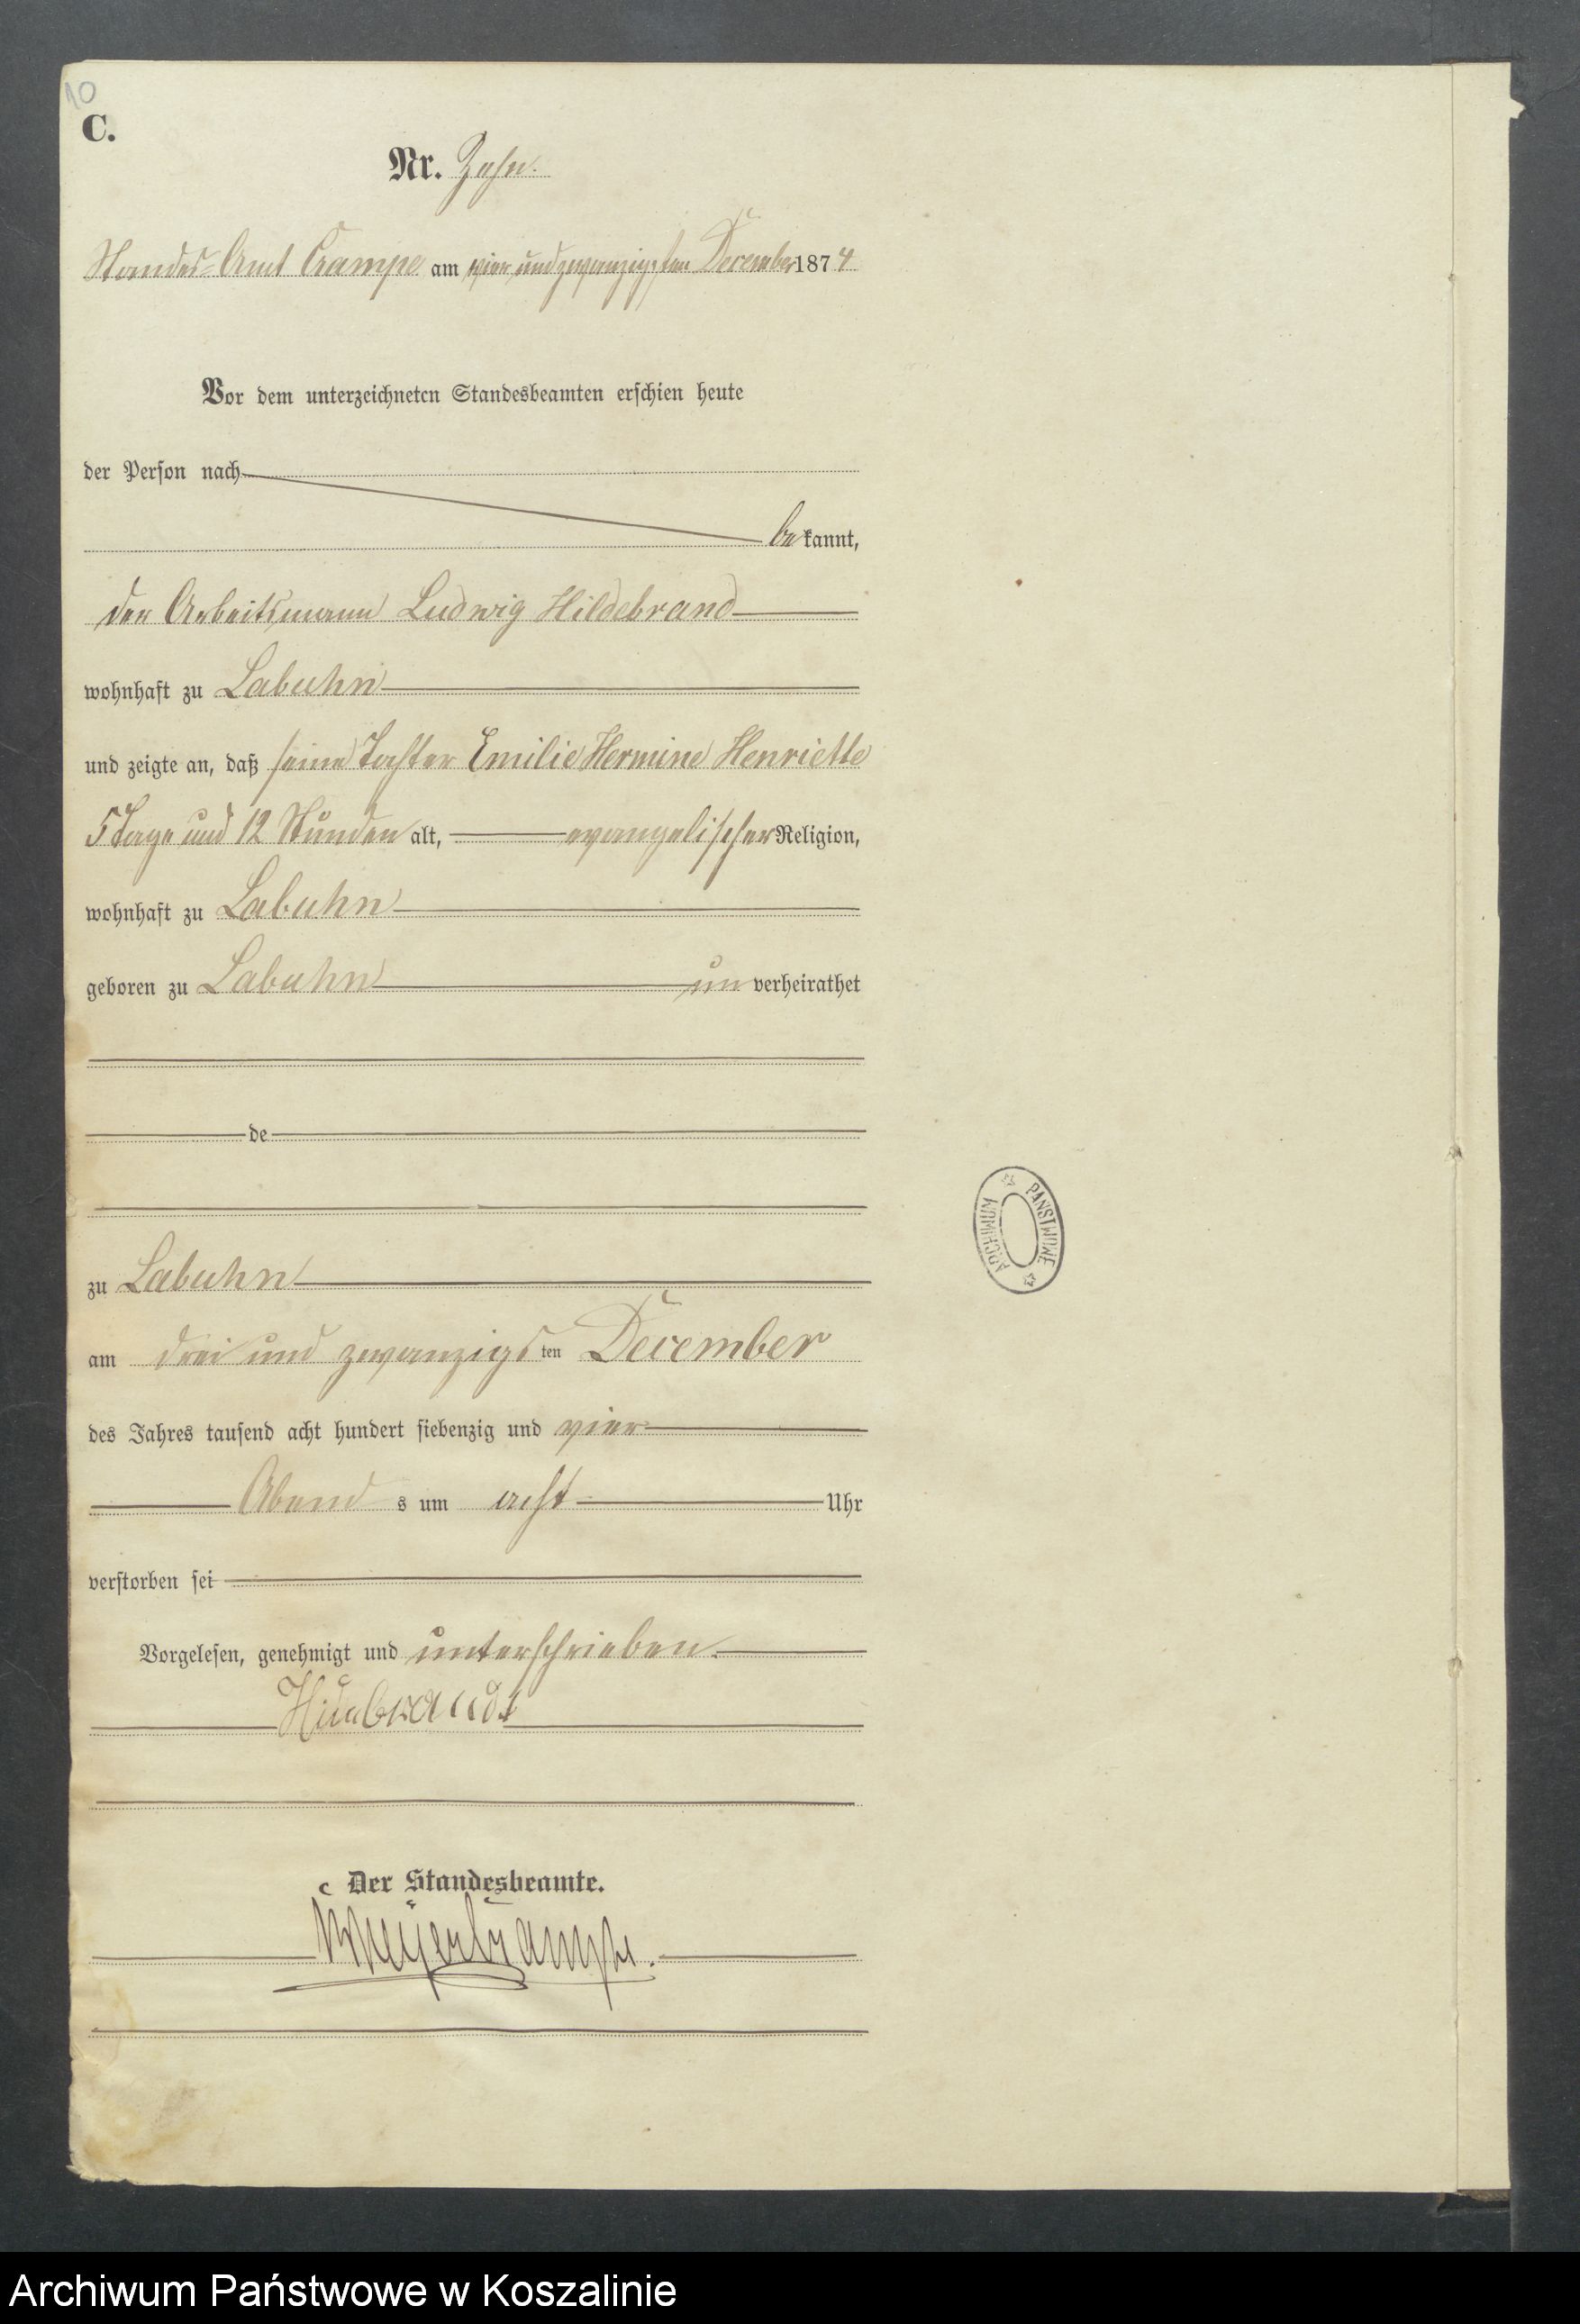 10
C.
Nr. Zehn.
Standes-Amt Crampe am vier und zwanzigsten December 1874
Vor dem unterzeichneten Standesbeamten erschien heute
der Person nach
bekannt,
der Arbeitsmann Ludwig Hildebrand
wohnhaft zu Labuhn
und zeigte an, daß seine Tochter Emilie Hermine Henriette
5 Tage und 12 Stunden alt, evangelischer Religion,
wohnhaft zu Labuhn
geboren zu Labuhn unverheirathet
de
zu Labuhn
am drei und zwanzigsten December
des Jahres tausend acht hundert siebenzig und vier
Abends um acht Uhr
verstorben sei
Vorgelesen, genehmigt und unterschrieben.
Der Standesbeamte.
ARCHIWUM PAŃSTWOWE
Archiwum Państwowe w Koszalinie